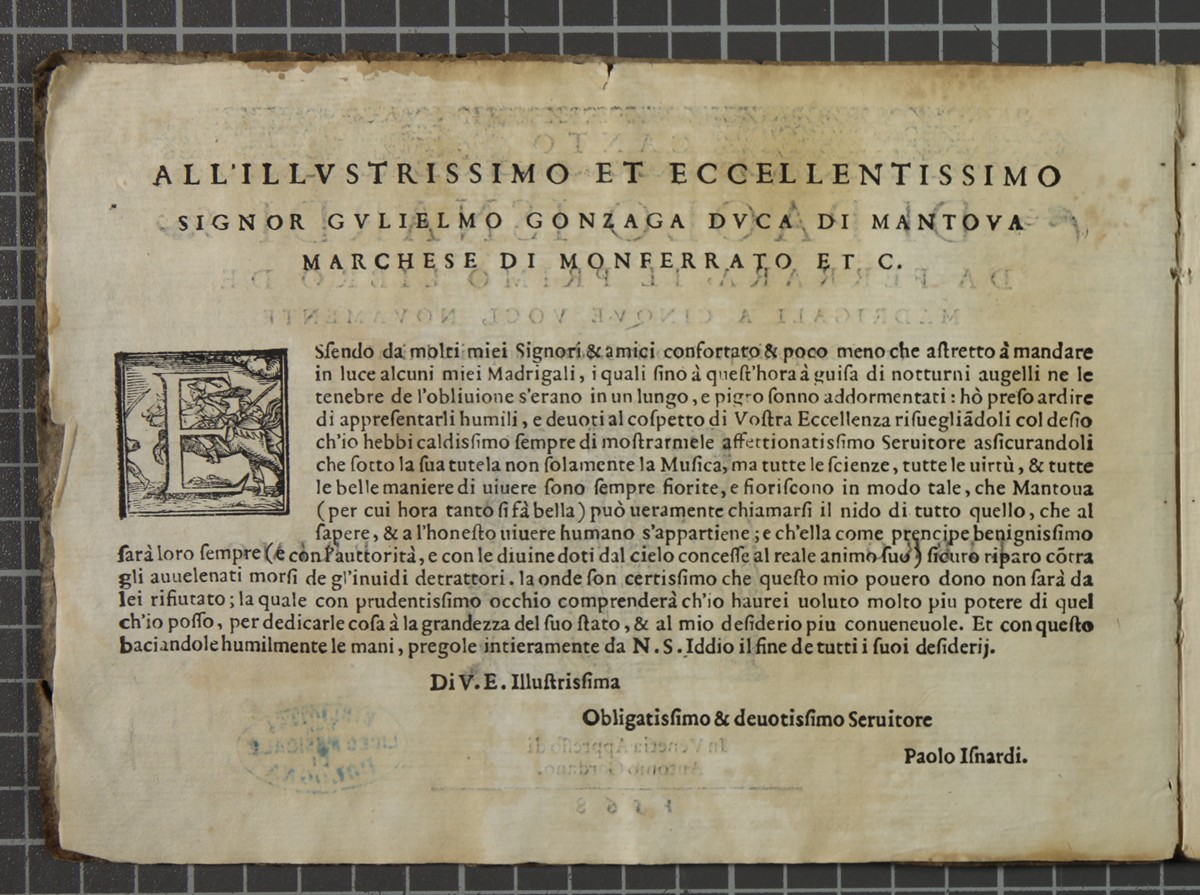 ALL'ILLVSTRISSIMO ET ECCELLENTISSIMO
SIGNOR GVLIELMO GONZAGA DVCA DI MANTOVA
MARCHESE DI MONFERRATO ET C.
ESſendo da molti miei Signori & amici confortato & poco meno che aſtretto à mandare
in luce alcuni miei Madrigali, i quali ſino à queſt'hora à guiſa di notturni augelli ne le
tenebre de l'obliuione s'erano in un lungo, e pigro ſonno addormentati : hò preſo ardire
di appreſentarli humili, e deuoti al coſpetto di Voſtra Eccellenza riſuegliãdoli col deſio
ch'io hebbi caldiſſimo ſempre di moſtrarmele affettionatiſſimo Seruitore aſſicurandoli
che ſotto la ſua tutela non ſolamente la Muſica, ma tutte le ſcienze, tutte le uirtù, & tutte
le belle maniere di uiuere ſono ſempre fiorite, e fioriſcono in modo tale, che Mantoua
(per cui hora tanto ſi fà bella) può ueramente chiamarſi il nido di tutto quello, che al
ſapere, & a l'honeſto uiuere humano s'appartiene; e ch'ella come prencipe benigniſſimo
ſarà loro ſempre (e con l'auttorità, e con le diuine doti dal cielo conceſſe al reale animo ſuo) ſicuro riparo cõtra
gli auuelenati morſi de gl'inuidi detrattori. la onde ſon certiſſimo che queſto mio pouero dono non ſarà da
lei rifiutato; la quale con prudentiſſimo occhio comprenderà ch'io haurei uoluto molto piu potere di quel
ch'io poſſo, per dedicarle coſa à la grandezza del ſuo ſtato, & al mio deſiderio piu conueneuole. Et con queſto
baciandole humilmente le mani, pregole intieramente da N. S. Iddio il fine de tutti i ſuoi deſiderij.
Di V. E. Illuſtriſſima
Obligatiſſimo & deuotiſſimo Seruitore
Paolo Iſnardi.